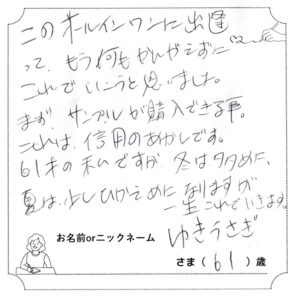 このオールインワンに出逢
って、もう何もかんがえずに
これでいこうと思いました。
まず、サンプルが購入できる事。
これは、信用のあかしです。
61才の私ですが、冬は多めに、
夏は、少しひかえめになりますが
一生これでいきます。
ゆきうさぎ
お名前orニックネーム
さま（61）歳